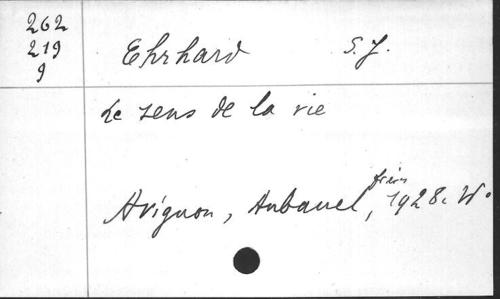 262
219
9
Ehrhard S. J.
Le sens de la vie
Avignon, Aubanel frères, 1928. W.